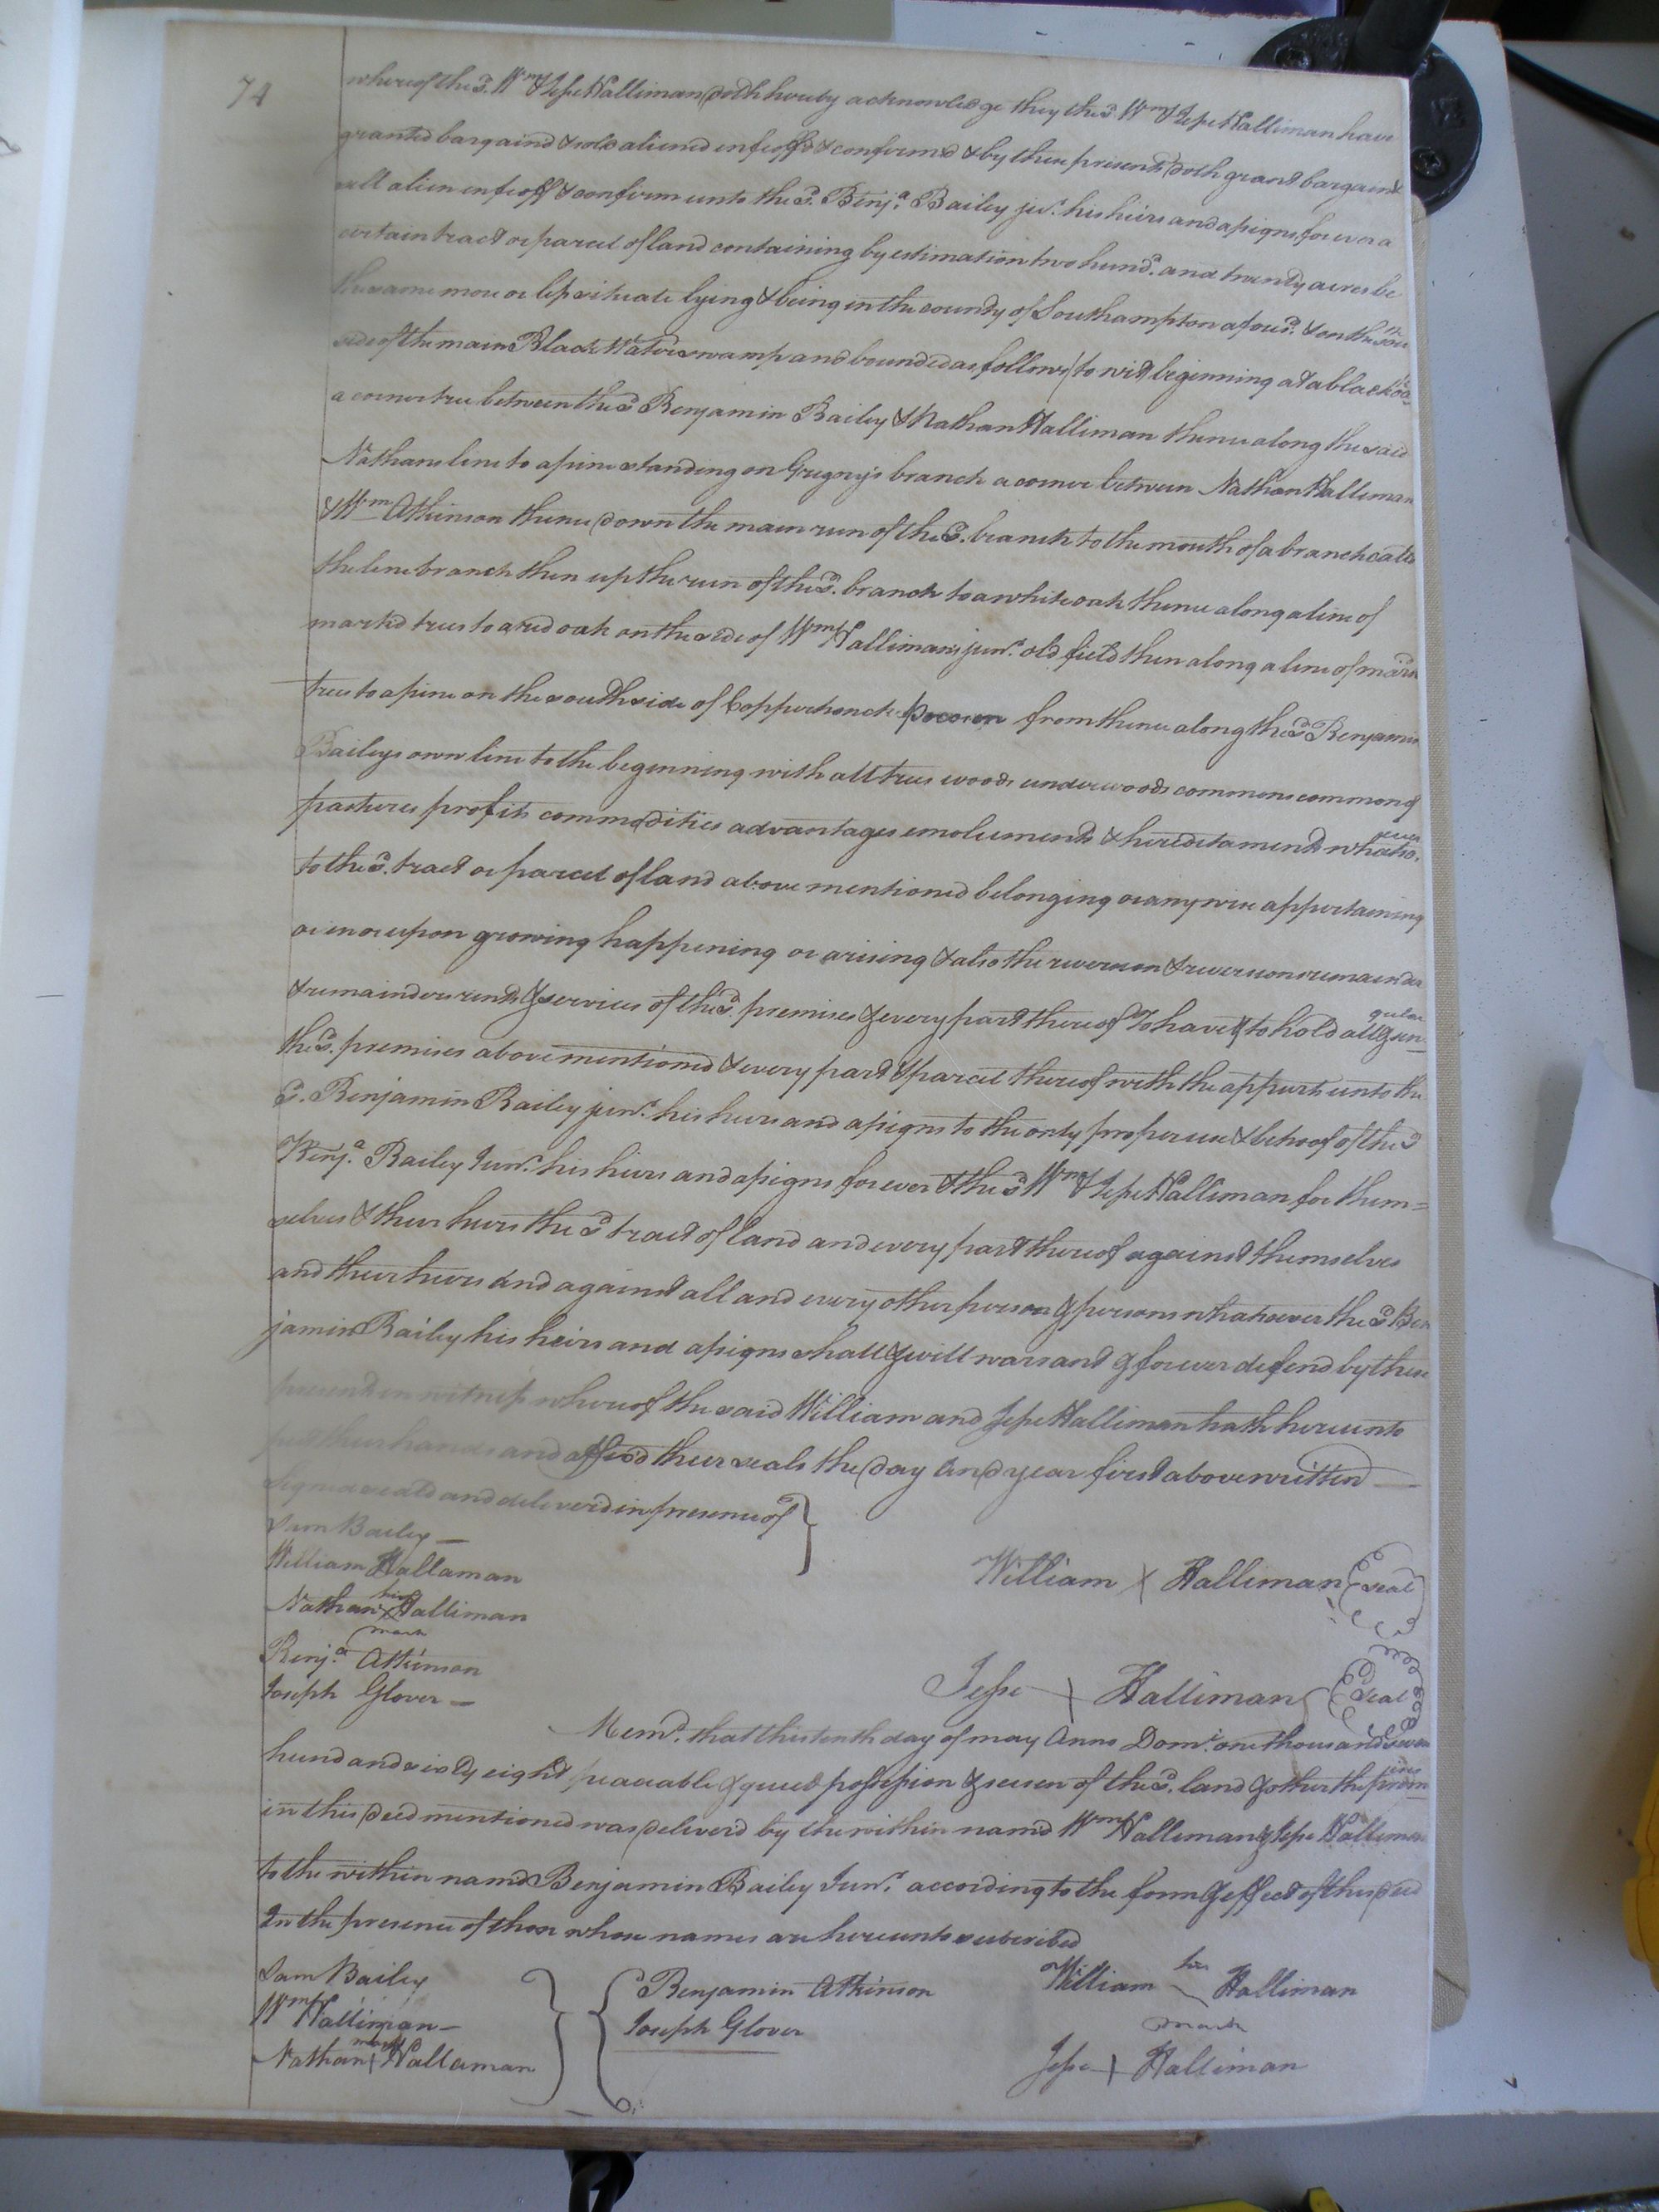 74
whereof the sd. Wm & Jesse Halliman doth hereby acknowledge they the sd Wm & Jesse Halliman have
granted bargaind & sold aliened enfeoffd & confirmd & by these presents doth grant bargain &
sell alien enfeoff & confirm unto the sd. Benja. Bailey junr. his heirs and assigns for ever a
certain tract or parcel of land containing by estimation two hundd. and twenty acres be
the same more or less situate lying & being in the county of Southampton afousd. & on the Sou
side of the main Black Water swamp and bounded as follows to wit beginning at a black oa
a corner tree between the sd Benjamin Bailey & Nathan Halliman thence along the said
Nathans line to a pine standing on Gregory's branch a corner between Nathan Halliman
& Wm Atkinson thence down the main run of the sd. branch to the mouth of a branch calld
the line branch then up the run of the sd. branch to a white oak thence along a line of
markd trees to a red oak on the side of Wm Hallimans junr. old field then along a line of markd
trees to a pine on the south side of Copperhonck pocoson from thence along the sd Benjamin
Baileys own line to the beginning with all trees woods underwoods commons common of
pastures profits commodities advantages emoluments & hereditaments whatso ever
to the sd. tract or parcel of land above mentioned belonging or any wise appertaining
or in or upon growing happening or arising & also the reversion & reversions remainder
& remainders rents & services of the sd. premises & every part thereof To have & to hold all & sin gular
the sd. premises above mentioned & every part & parcel thereof with the appurts unto the
sd. Benjamin Bailey junr. his heirs and assigns to the only proper use & behoof of the sd
Benja. Bailey Junr. his heirs and assigns for ever & the sd Wm & Jesse Halliman for them=
selves & their heirs the sd tract of land and every part thereof against themselves
and their heirs and against all and every other person & persons whatsoever the sd Ben
jamin Bailey his heirs and assigns shall & will warrant & forever defend by these
presents in witness whereof the said William and Jesse Halliman hath hereunto
sett their hands and affixd their seals the day and year first above written
Signed seald and deliverd in presence of
Sam Bailey
William Hallaman William X Halliman seal
Nathan his X mark Halliman
Benja. Atkinson
Joseph Glover Jesse X Halliman seal
Memd. that this tenth day of may Anno Domi. one thousand seven
hund and sixty eight peaceable & quiet possession & seisen of the sd. land & other the prem ises
in this deed mentioned was deliverd by the within namd Wm Halliman & Jesse Halliman
to the within namd Benjamin Bailey Junr. according to the form & effect of this deed
In the presence of those whose names are hereunto subscribed
Sam Bailey Benjamin Atkinson William his mark Halliman
Wm Halliman Joseph Glover
Nathan X mark Hallaman Jesse X Halliman